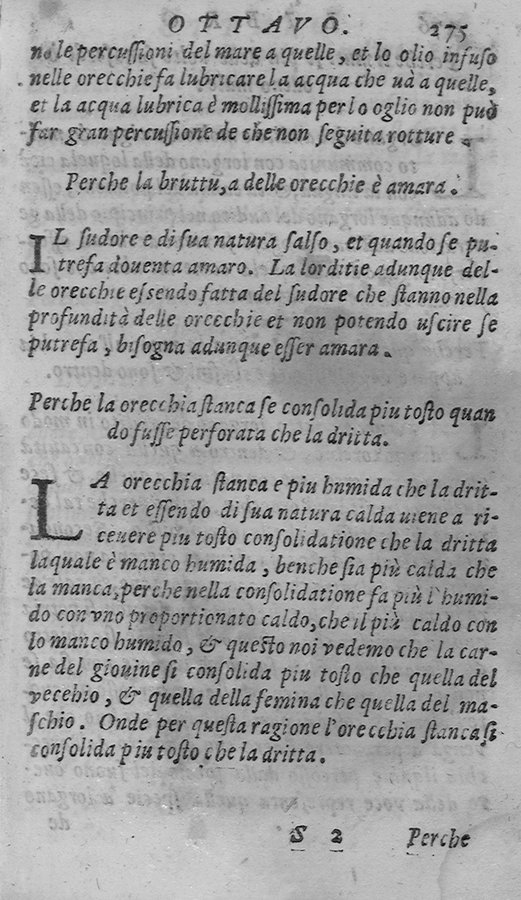 OTTAVO. 275
no le percussioni del mare a quelle, et lo olio infuso
nelle orecchie fa lubricare la acqua che uà a quelle,
et la acqua lubrica è mollissima per lo oglio non può
far gran percussione de che non seguita rotture.
Perche la bruttu,a delle orecchie è amara.
IL sudore e di sua natura salso, et quando se pu-
trefa douenta amaro. La lorditie adunque del-
le orecchie essendo fatta del sudore che stanno nella
profundità delle orecchie et non potendo uscire se
putrefa, bisogna adunque esser amara.
Perche la orecchia stanca se consolida piu tosto quan
do fusse perforata che la dritta.
LA orecchia stanca e piu hnmida che la drit-
ta et essendo di sua natura calda uiene a ri-
ceuere piu tosto consolidatione che la dritta
laquale è manco humida, benche sia più calda che
la manca, perche nella consolidatione fa più l'humi-
do con vno proportionato caldo, che il più caldo con
lo manco humido, & questo noi vedemo che la car-
ne del giouine si consolida piu tosto che quella del
vecehio, & quella della femina che quella del ma-
schio. Onde per questa ragione l'orecchia stanca si
consolida piu tosto che la dritta.
S 2 Perche